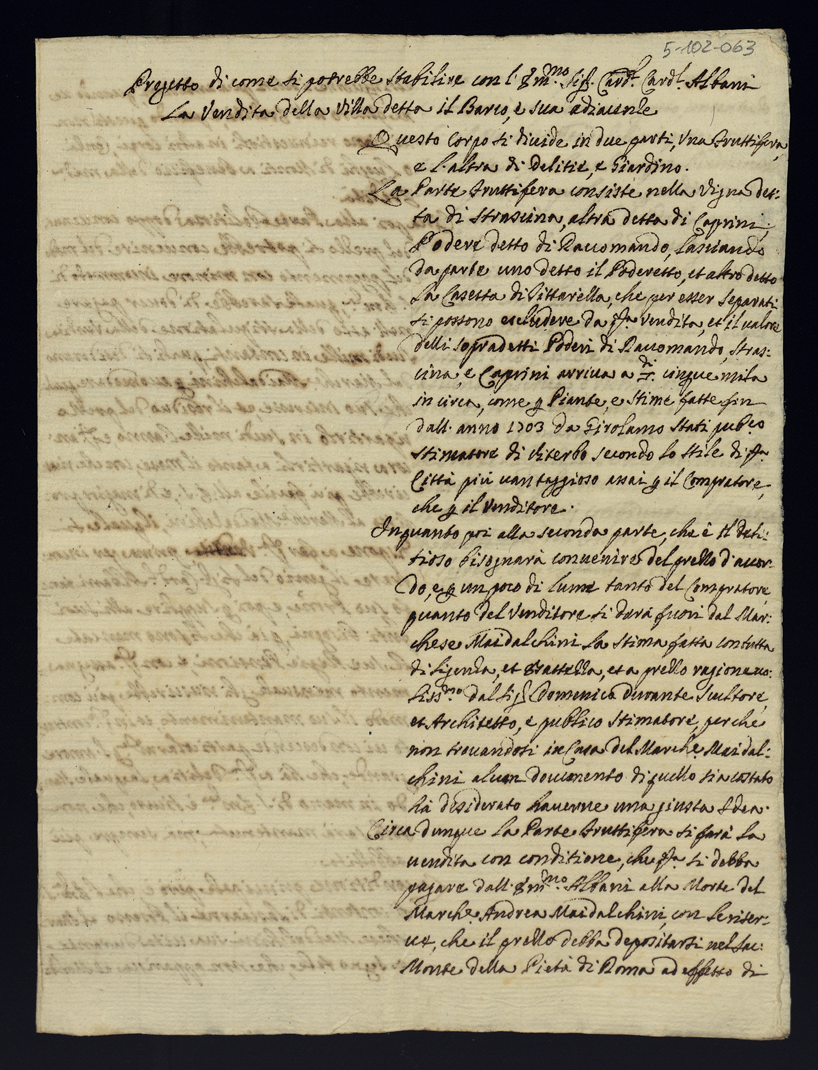 5-102-063
Progetto di come si potrebbe stabilire con l'Emno Sig. Card. Card. Albani
La Vendita della Villa detta il Barco, e sua adiacente
Questo Corpo si divide in due parti, Una fruttifera,
e l'altra di Delitie, e Giardino.
La Parte fruttifera consiste nella Vigna det-
ta di Strascina, altra detta di Caprini,
Podere detto di Raccomando, lasciando
da parte uno detto il Poderetto, et altro detto
la Casetta di Cittarella, che per esser separati
si possono escludere da qta Vendita, et il valore
delli sopradetti Poderi di Raccomando, Stras-
cina, e Caprini arriva a di cinque mila
in circa, come p Piante, e stime fatte fin
dall'anno 1703 da Girolamo Stati pubco
stimatore di Viterbo secondo lo stile di qta
Città più vantaggioso assai p il Compratore,
che p il Venditore.
In quanto poi alla seconda parte, che è il deli-
tioso bisognarà convenire del prezzo d'accor-
do, e p un poco di lume tanto del Compratore,
quanto del Venditore si darà fuori dal Mar-
chese Maidalchini la stima fatta con tutta
diligenza, et esattezza, et a prezzo ragionevo-
lissmo dal Sig Domenico Durante Scultore,
et Architetto, e publico stimatore, perche
non trovandosi in Casa del Marche Maidal-
chini alcun documento di quello sia costato
hà desiderato haverne una giusta Idea.
Circa dunque la Parte fruttifera si farà la
vendita con conditione, che qta si debba
pagare dall'Emno Albani alla Morte del
Marche Andrea Maidalchini, con le riser-
ve, che il prezzo debba depositarsi nel Sac:
Monte della Pietà di Roma ad effetto di